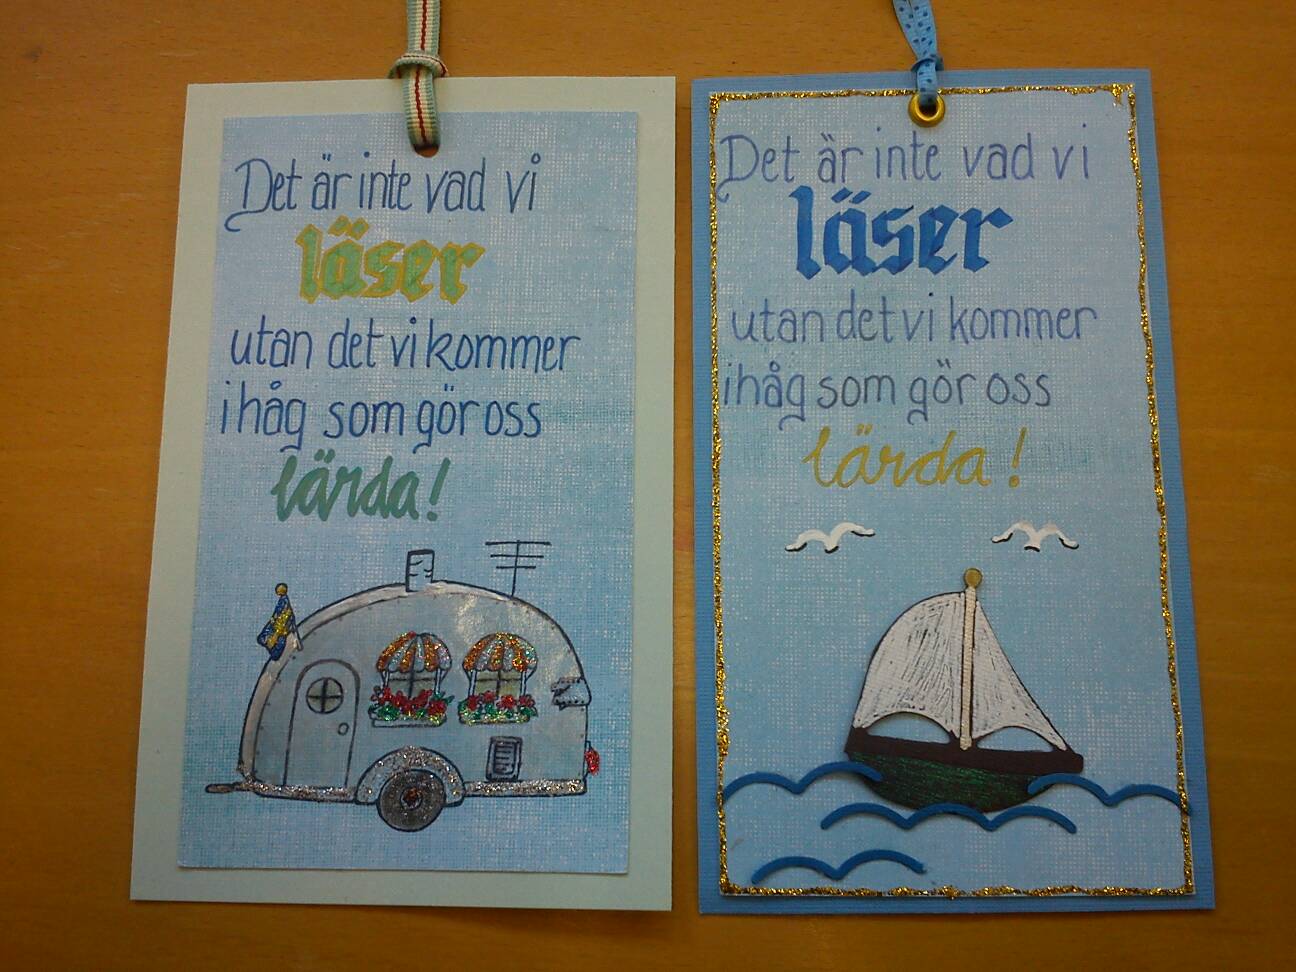 Det är inte vad vi
läser
utan det vi kommer
ihåg som gör oss
lärda!
Det är inte vad vi
läser
utan det vi kommer
ihåg som gör oss
lärda!